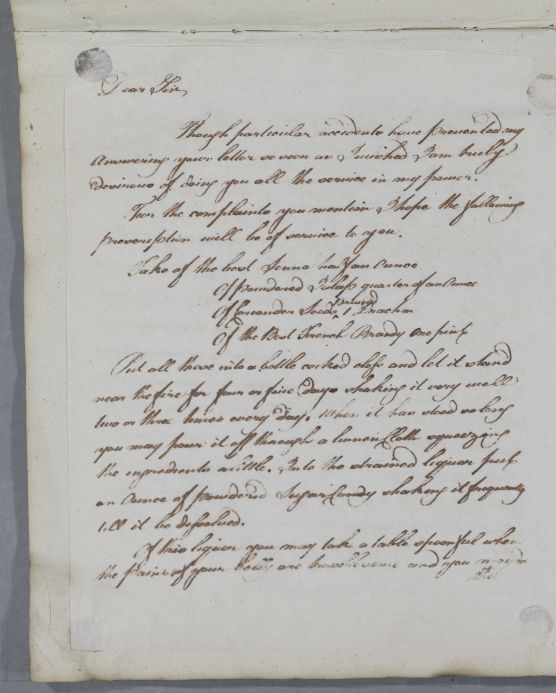 Dear Sir,
Though particular accidents have prevented my
answering your letter so soon as I wished I am truly
desirous of doing you all the service in my power.
For the complaints you mention I hope the following
prescription will be of service to you.
Take of the best Senna half an ounce
Of powdered Jalap quarter of an Ounce
Of Coriander Seeds bruised 1 Drachm
Of the Best French Brandy one pint
Put all these into a bottle corked close and let it stand
near the fire for four or five Days shaking it very well
two or three times every day. When it has stood so long
you may pour it off through a linnen Cloth squeezing
the ingredients a little. Into the strained liquor put
an Ounce of powdered Sugar Candy shaking it frequently
till it be dissolved.
Of this liquor you may take a table spoonful when
the Pains of your are troublesome and you may